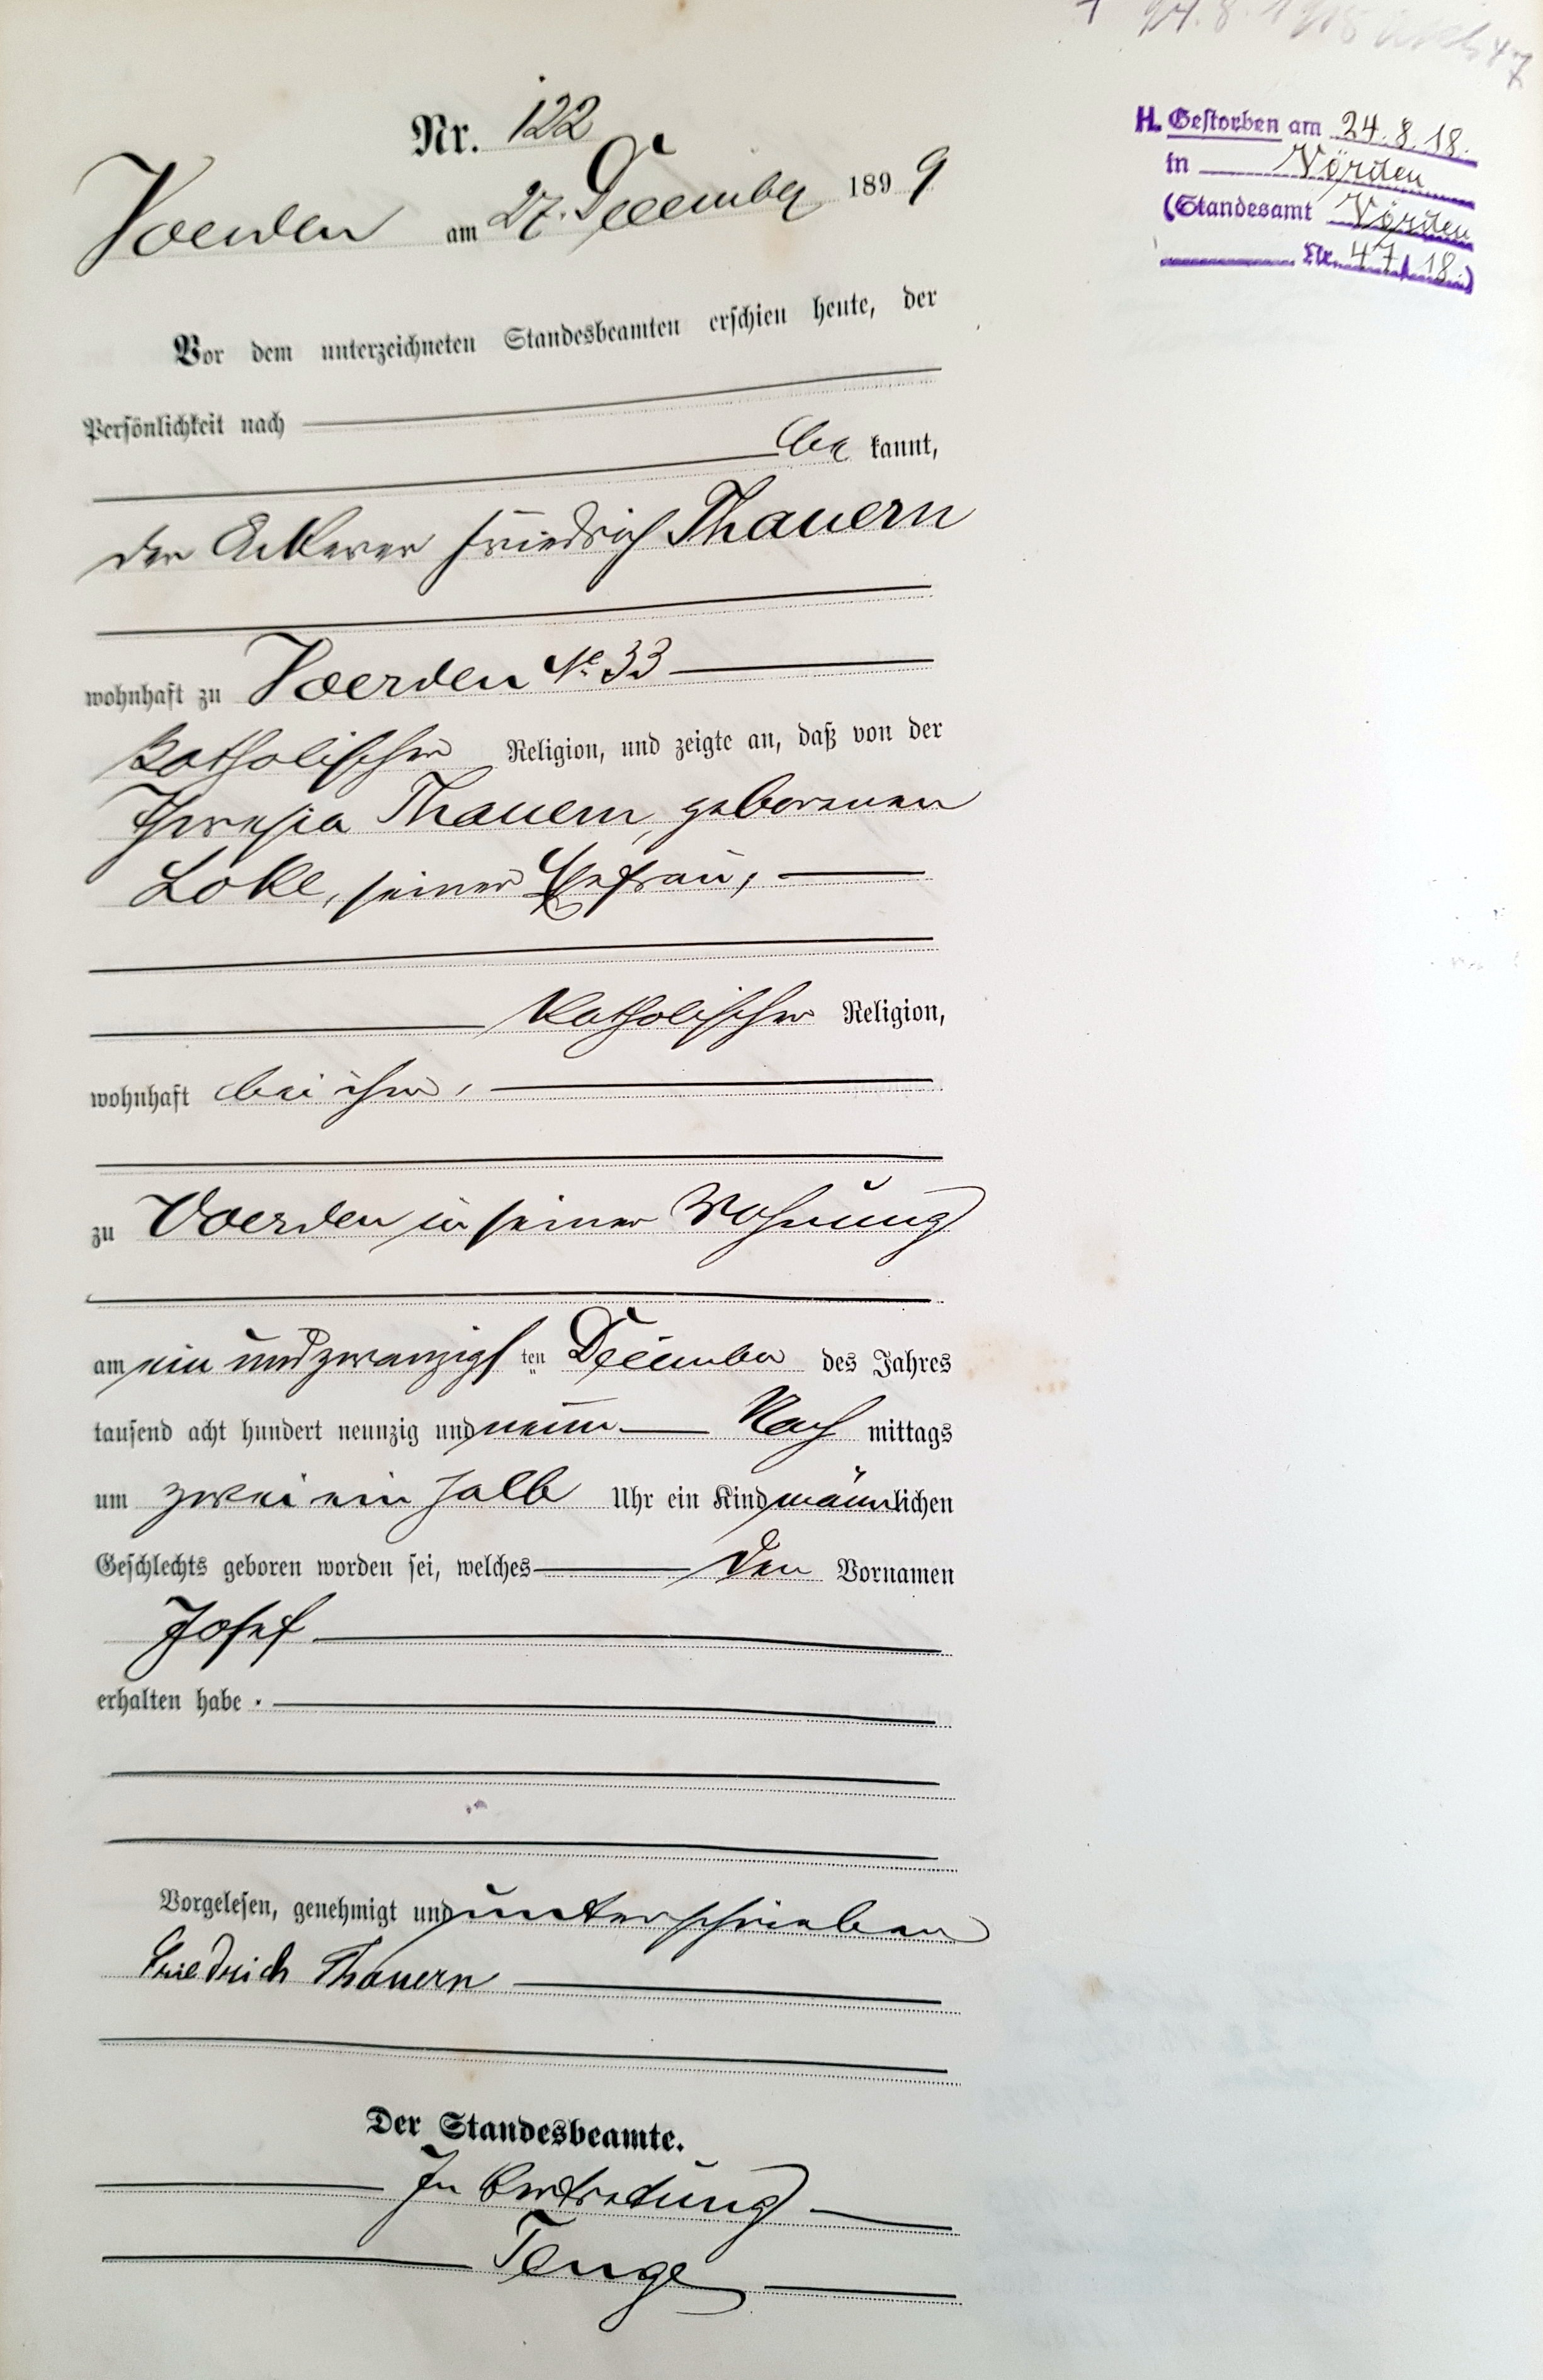 † 24.8.1918 47
H. Gestorben am 24.8.18.
in Vörden
(Standesamt Vörden
Nr. 47/18.)
Nr. 122
Voerden am 27. December 1899
Vor dem unterzeichneten Standesbeamten erschien heute, der
Persönlichkeit nach
be kannt,
der Ackerer Friedrich Thauern
wohnhaft zu Voerden No 33
katholischer Religion, und zeigte an, daß von der
Theresia Thauern, geborenen
Loke, seiner Ehefrau,
katholischer Religion,
wohnhaft bei ihm,
zu Voerden in seiner Wohnung
am ein und zwanzigsten December des Jahres
tausend acht hundert neunzig und neun Nach mittags
um zwei ein halb Uhr ein Kind männlichen
Geschlechts geboren worden sei, welches den Vornamen
Josef
erhalten habe.
Vorgelesen, genehmigt und unterschrieben
Friedrich Thauern
Der Standesbeamte.
In Vertretung
Tenge